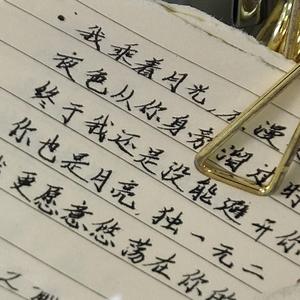 我乘着月光,
夜色从你身旁溜
终于我还是没能避开你
你也是月亮,独一无二
更愿意悠荡在你的
又